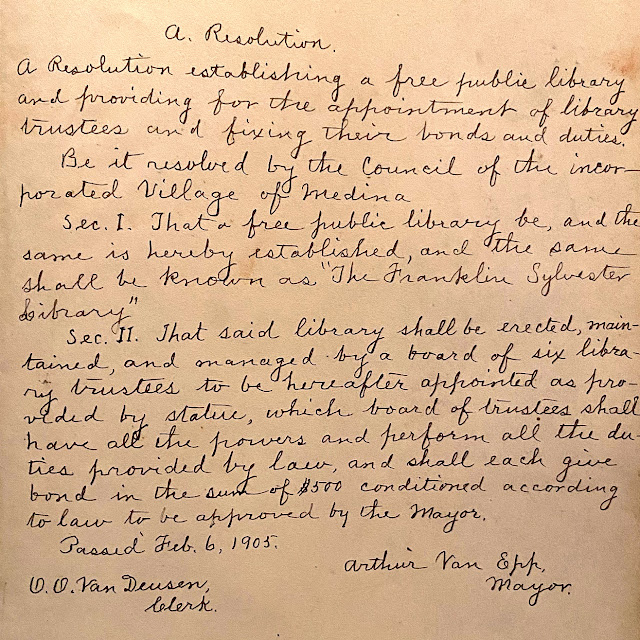 A. Resolution.
A Resolution establishing a free public library
and providing for the appointment of library
trustees and fixing their bonds and duties.
Be it resolved by the Council of the incor-
porated Village of Medina
Sec. I. That a free public library be, and the
same is hereby established, and the same
shall be known as "The Franklin Sylvester
Library"
Sec. II. That said library shall be erected, main-
tained, and managed by a board of six libra-
ry trustees to be hereafter appointed as pro-
vided by statue, which board of trustees shall
have all the powers and perform all the du-
ties provided by law, and shall each give
bond in the sum of $500 conditioned according
to law to be approved by the Mayor.
Passed Feb. 6, 1905.
Arthur Van Epp,
Mayor.
O.O. Van Deusen,
Clerk.